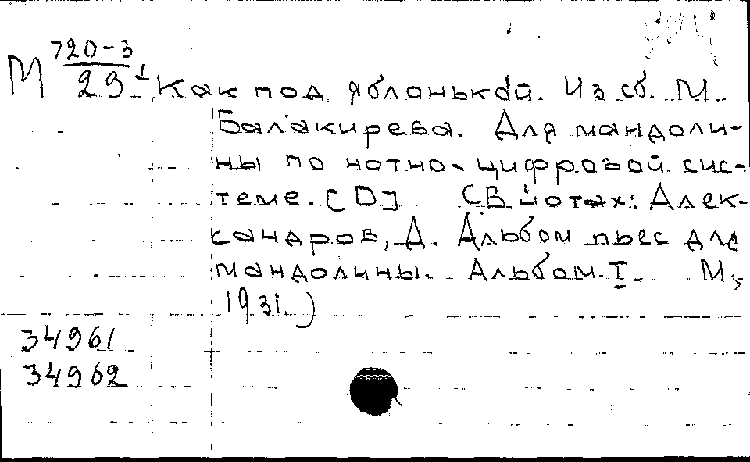 М 720-3
23¹ Как под яблонькой. Из сб. М.
Балакирева. Для мандоли-
ны по нотно-цифровой сис-
теме. [D] (В нотах: Алек-
сандров, А. Альбом пьес для
мандолины. Альбом I. М.,
1931.)
34961
34962